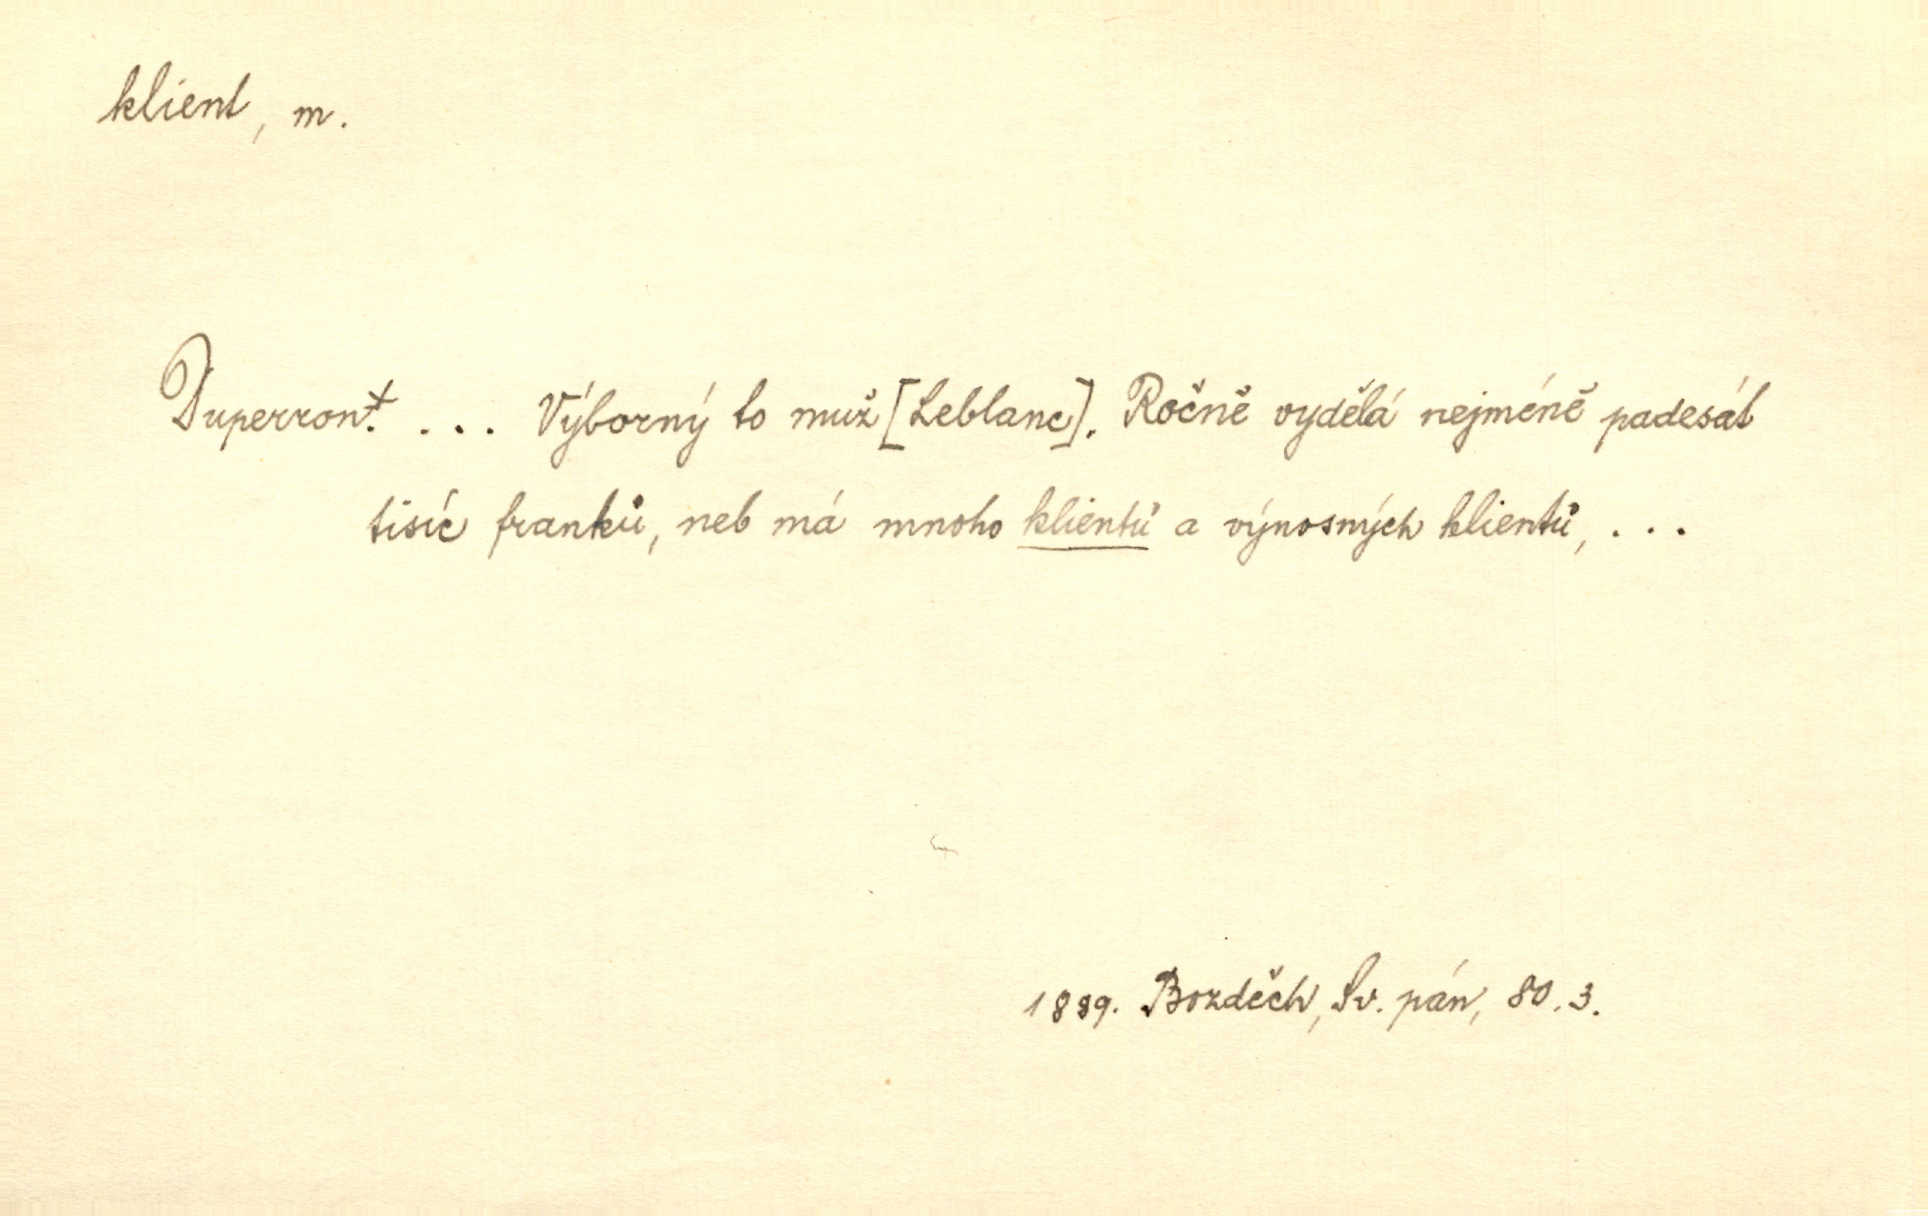 klient, m.
Duperront. ... Výborný to muž [Leblanc]. Ročně vydělá nejméně padesát
tisíc franků, neb má mnoho klientů a výnosných klientů, ...
1889. Bozděch, Sv. pán, 80.3.